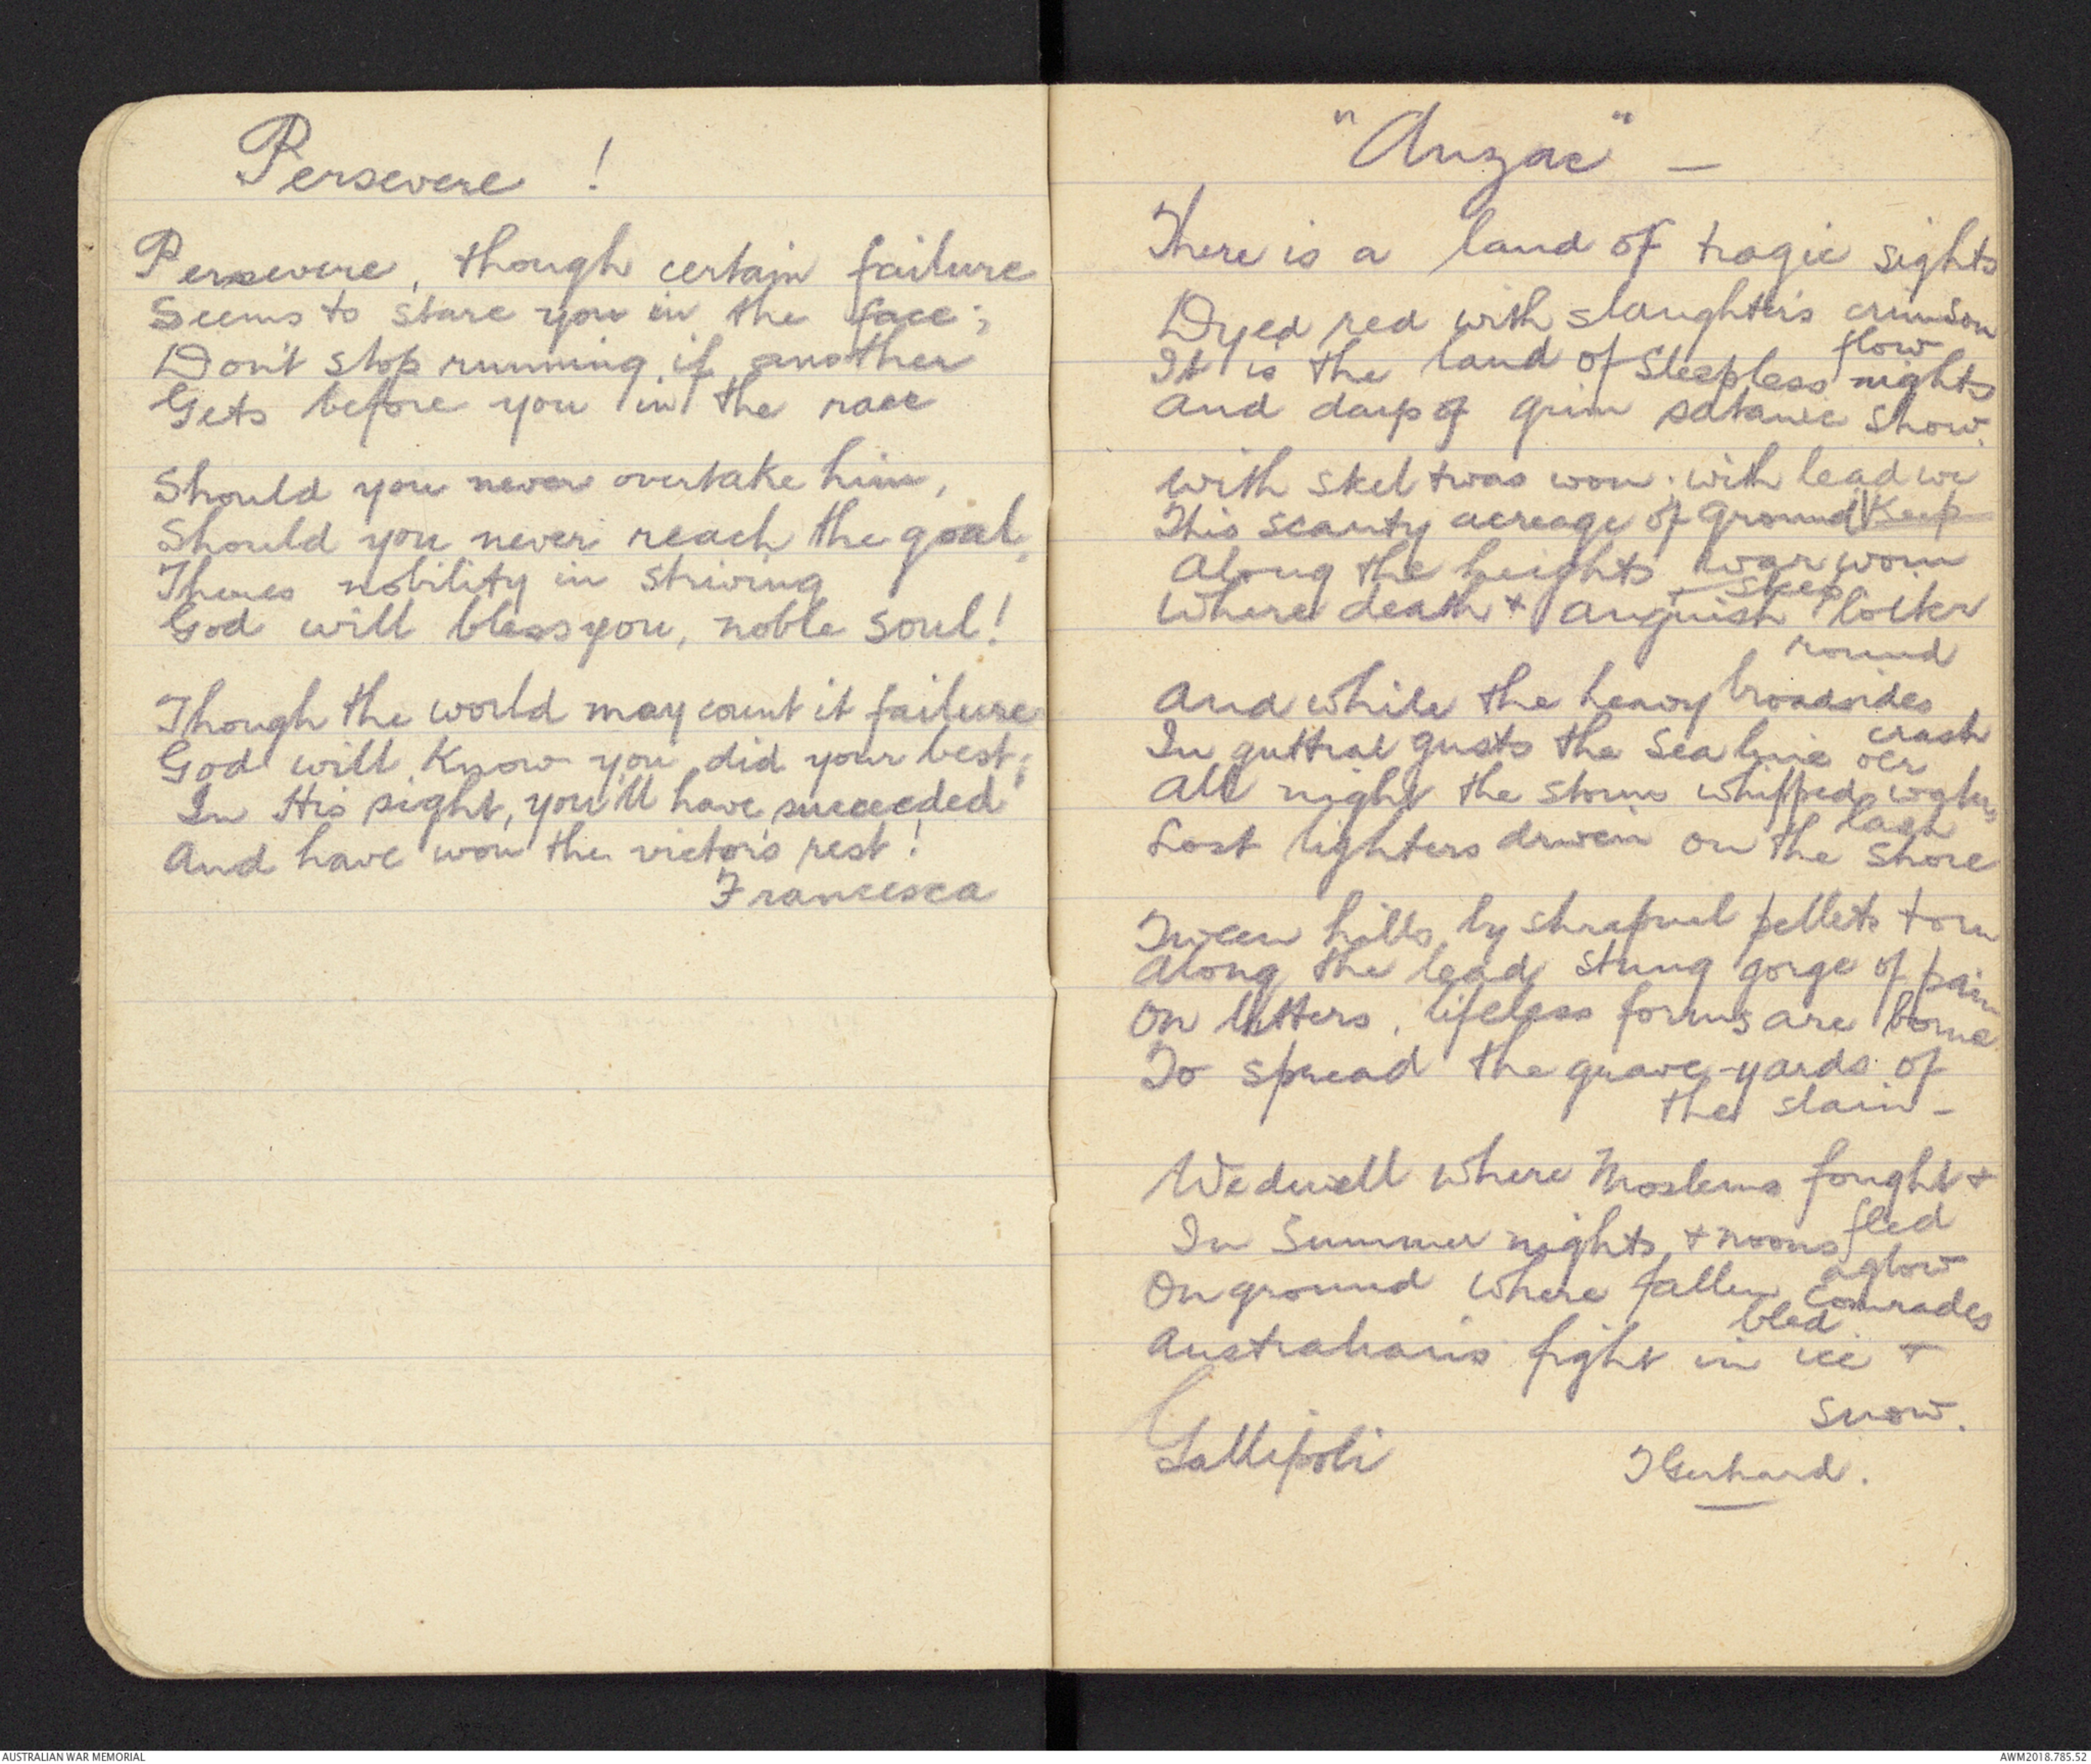 Persevere !
Persevere, though certain failure
Seems to stare you in the face;
Don't stop running if another
Gets before you in the race
Should you never overtake him,
Should you never reach the goal,
Theres nobility in striving
God will bless you, noble soul!
Though the world may count it failure
God will know you did your best;
In His sight, you'll have succeeded
And have won the victor's rest!
Francesca
"Anzac" —
There is a land of tragic sights
Dyed red with slaughter's crimson
flow
It is the land of Sleepless nights
and days of grim satanic show.
With skel twas won. with lead we
Keep
This scanty acreage of ground
Along the heights war worn
Steep
Where death + anguish locker
round
And while the heavy broadsides
crash
In guttral gusts the sea line oer
All night the storm whipped waters
lash
Lost lighters drivein on the shore
Tween hills by shrapnel pellets torn
Along the lead stung gorge of pain
On litters, lifeless forms are borne
To spread the grave-yards of
the slain -
We dwell where Moslems fought +
fled
In Summer nights + noons
aglow
On ground where fallen comrades
bled
Australians fight in ice +
snow.
Gallipoli
J Gerhard.
AUSTRALIAN WAR MEMORIAL
AWM2018.785.52